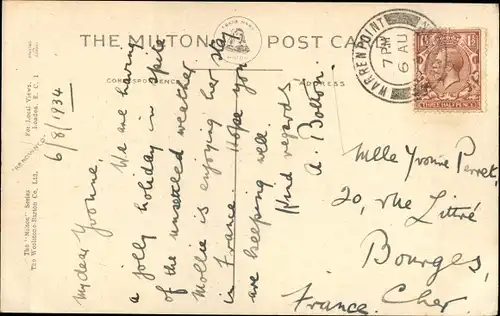 THE MILTON POST CARD
TRADE MARK
CORRESPONDENCE
ADDRESS
6/8/1934
My dear Yvonne,
We are having
a jolly holiday in spite
of the unsettled weather
Mollie is enjoying her stay
in France. Hope you
are keeping well.
Kind regards
A. Bolton.
Mlle Yvonne Perret
20, rue Littré
Bourges,
Cher.
France.
WARRENPOINT
7 PM
6 AU
THREE HALFPENCE
The "Milton" Series
The Woolstone-Barton Co. Ltd.
For Local Views.
London. E. C. 1